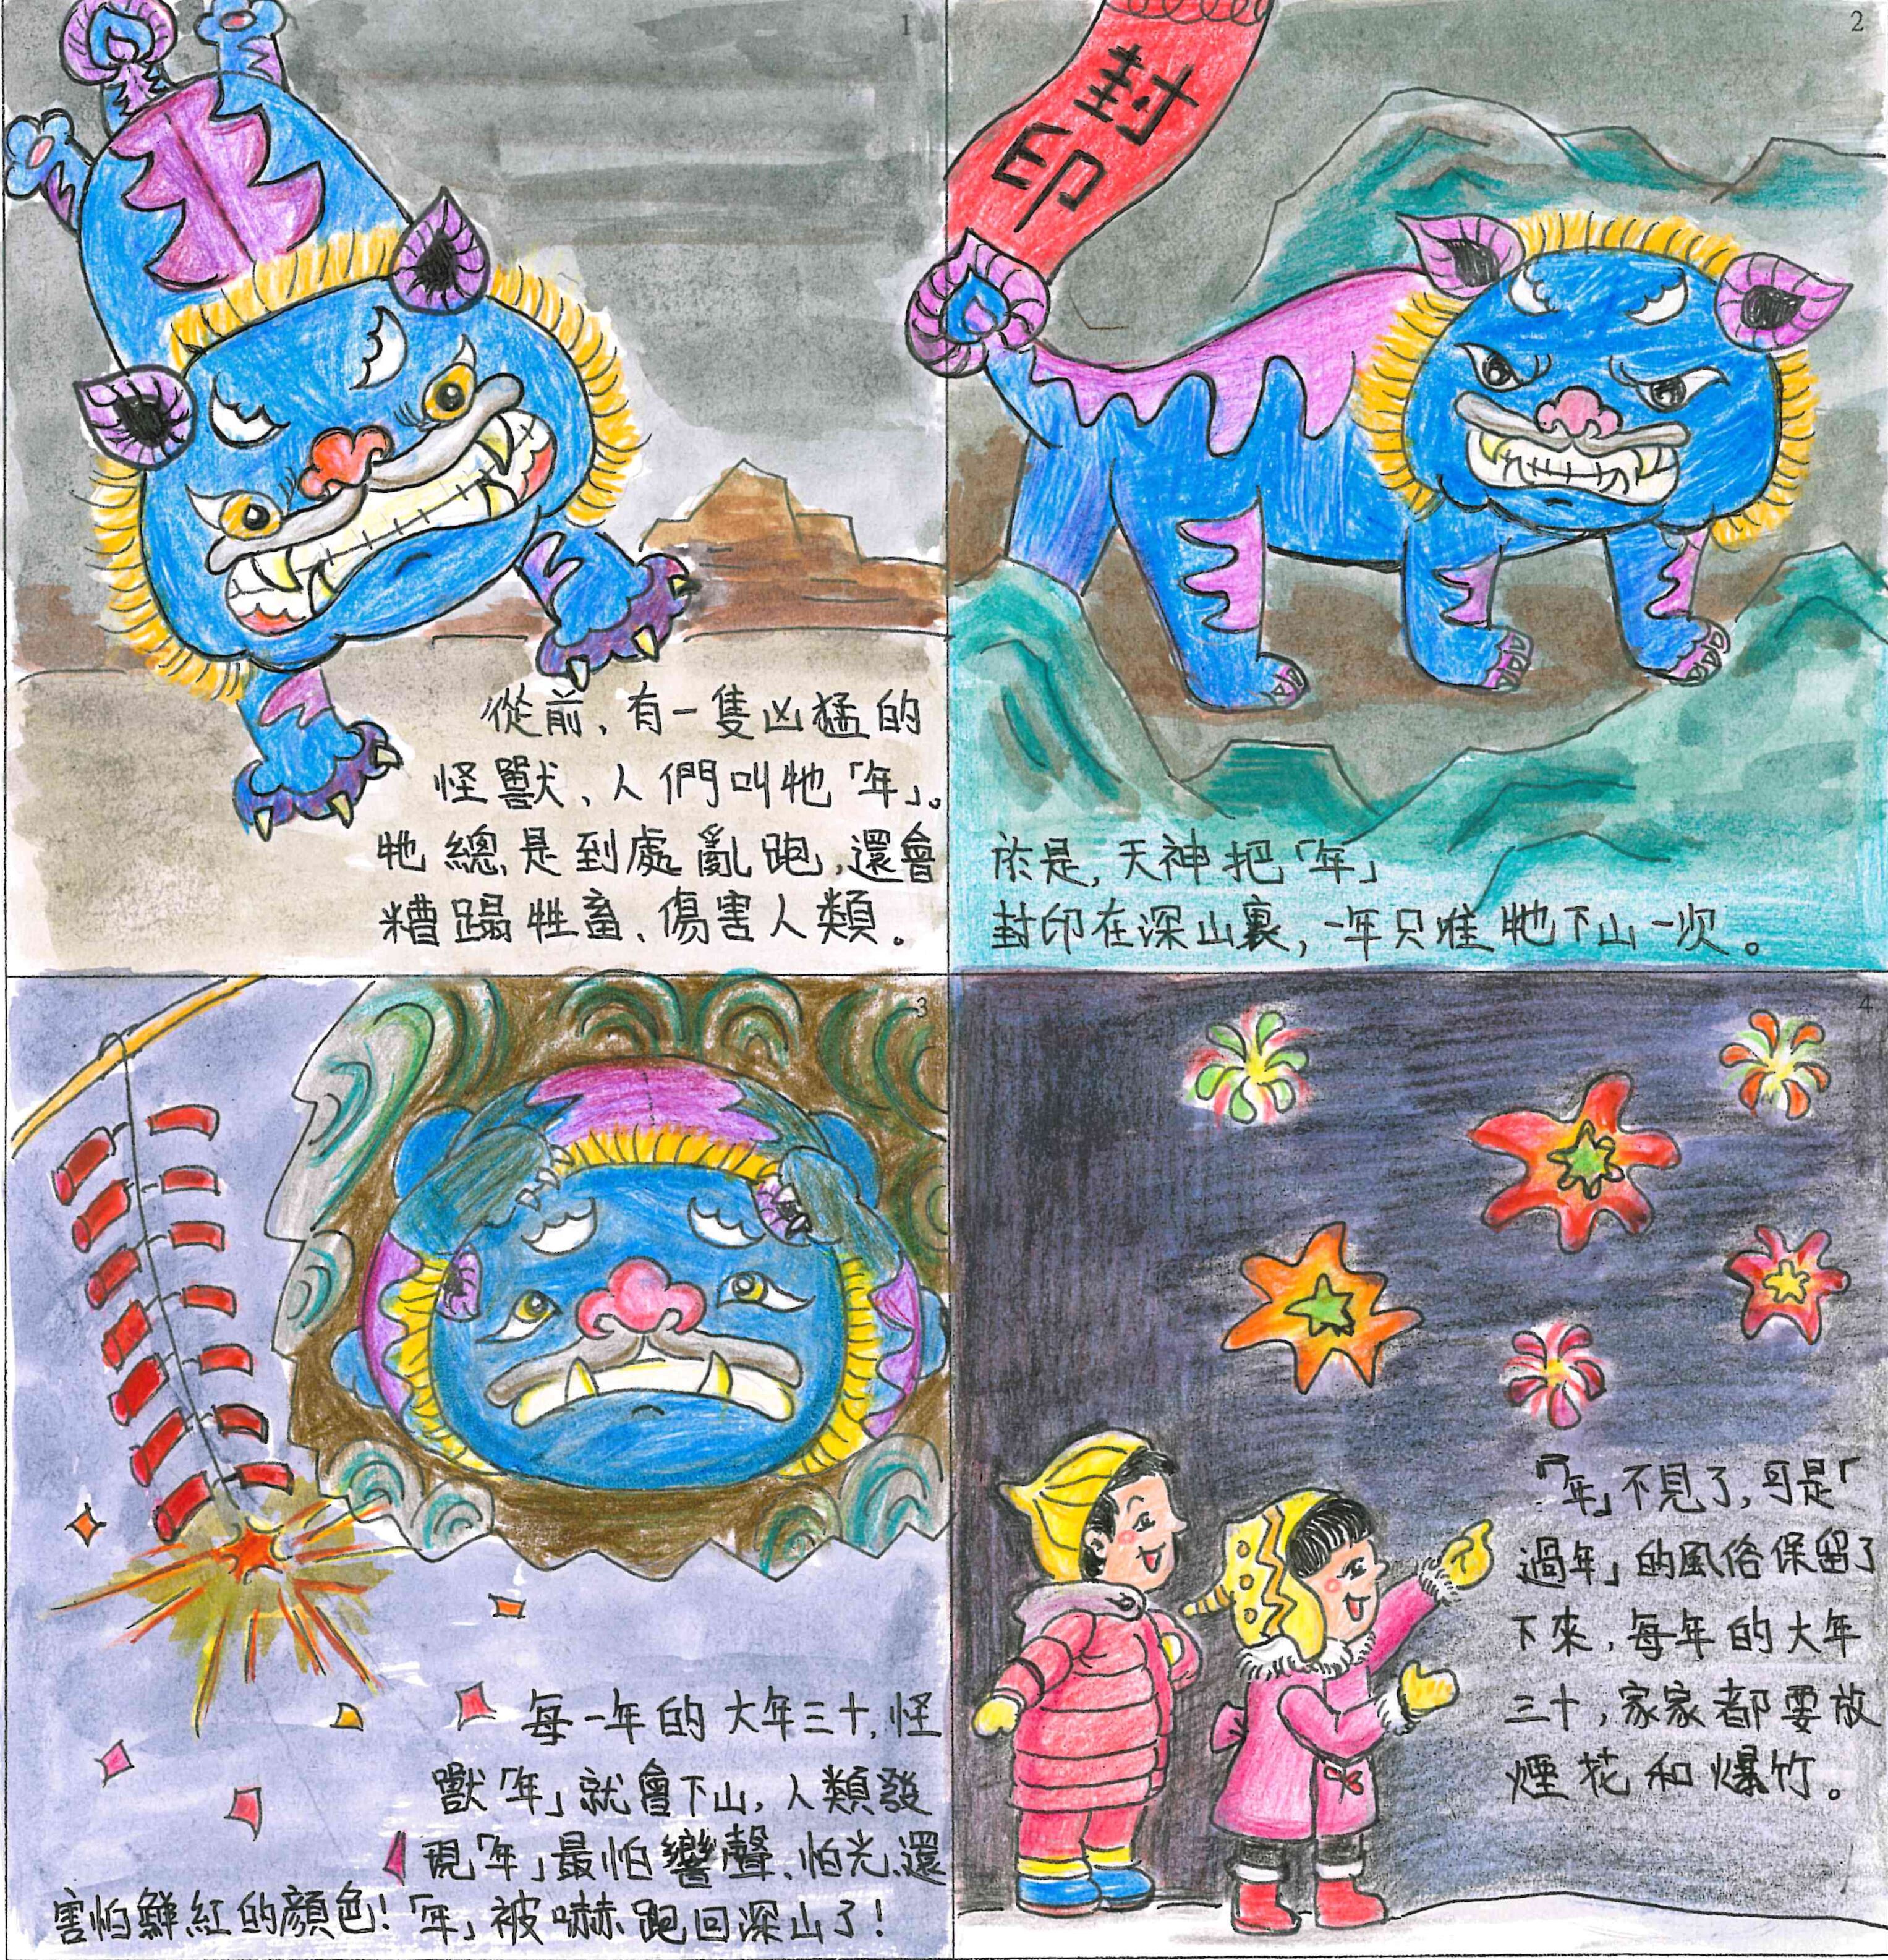 1
從前、有一隻凶猛的
怪獸、人們叫牠「年」。
牠總是到處亂跑,還會
糟蹋牲畜、傷害人類。
2
封印
於是,天神把「年」
封印在深山裏,一年只准牠下山一次。
3
每一年的大年三十,怪
獸「年」就會下山,人類發
現「年」最怕響聲、怕光、還
害怕鮮紅的顏色!「年」被嚇跑回深山了!
4
「年」不見了,可是「
過年」的風俗保留了
下來,每年的大年
三十,家家都要放
煙花和爆竹。